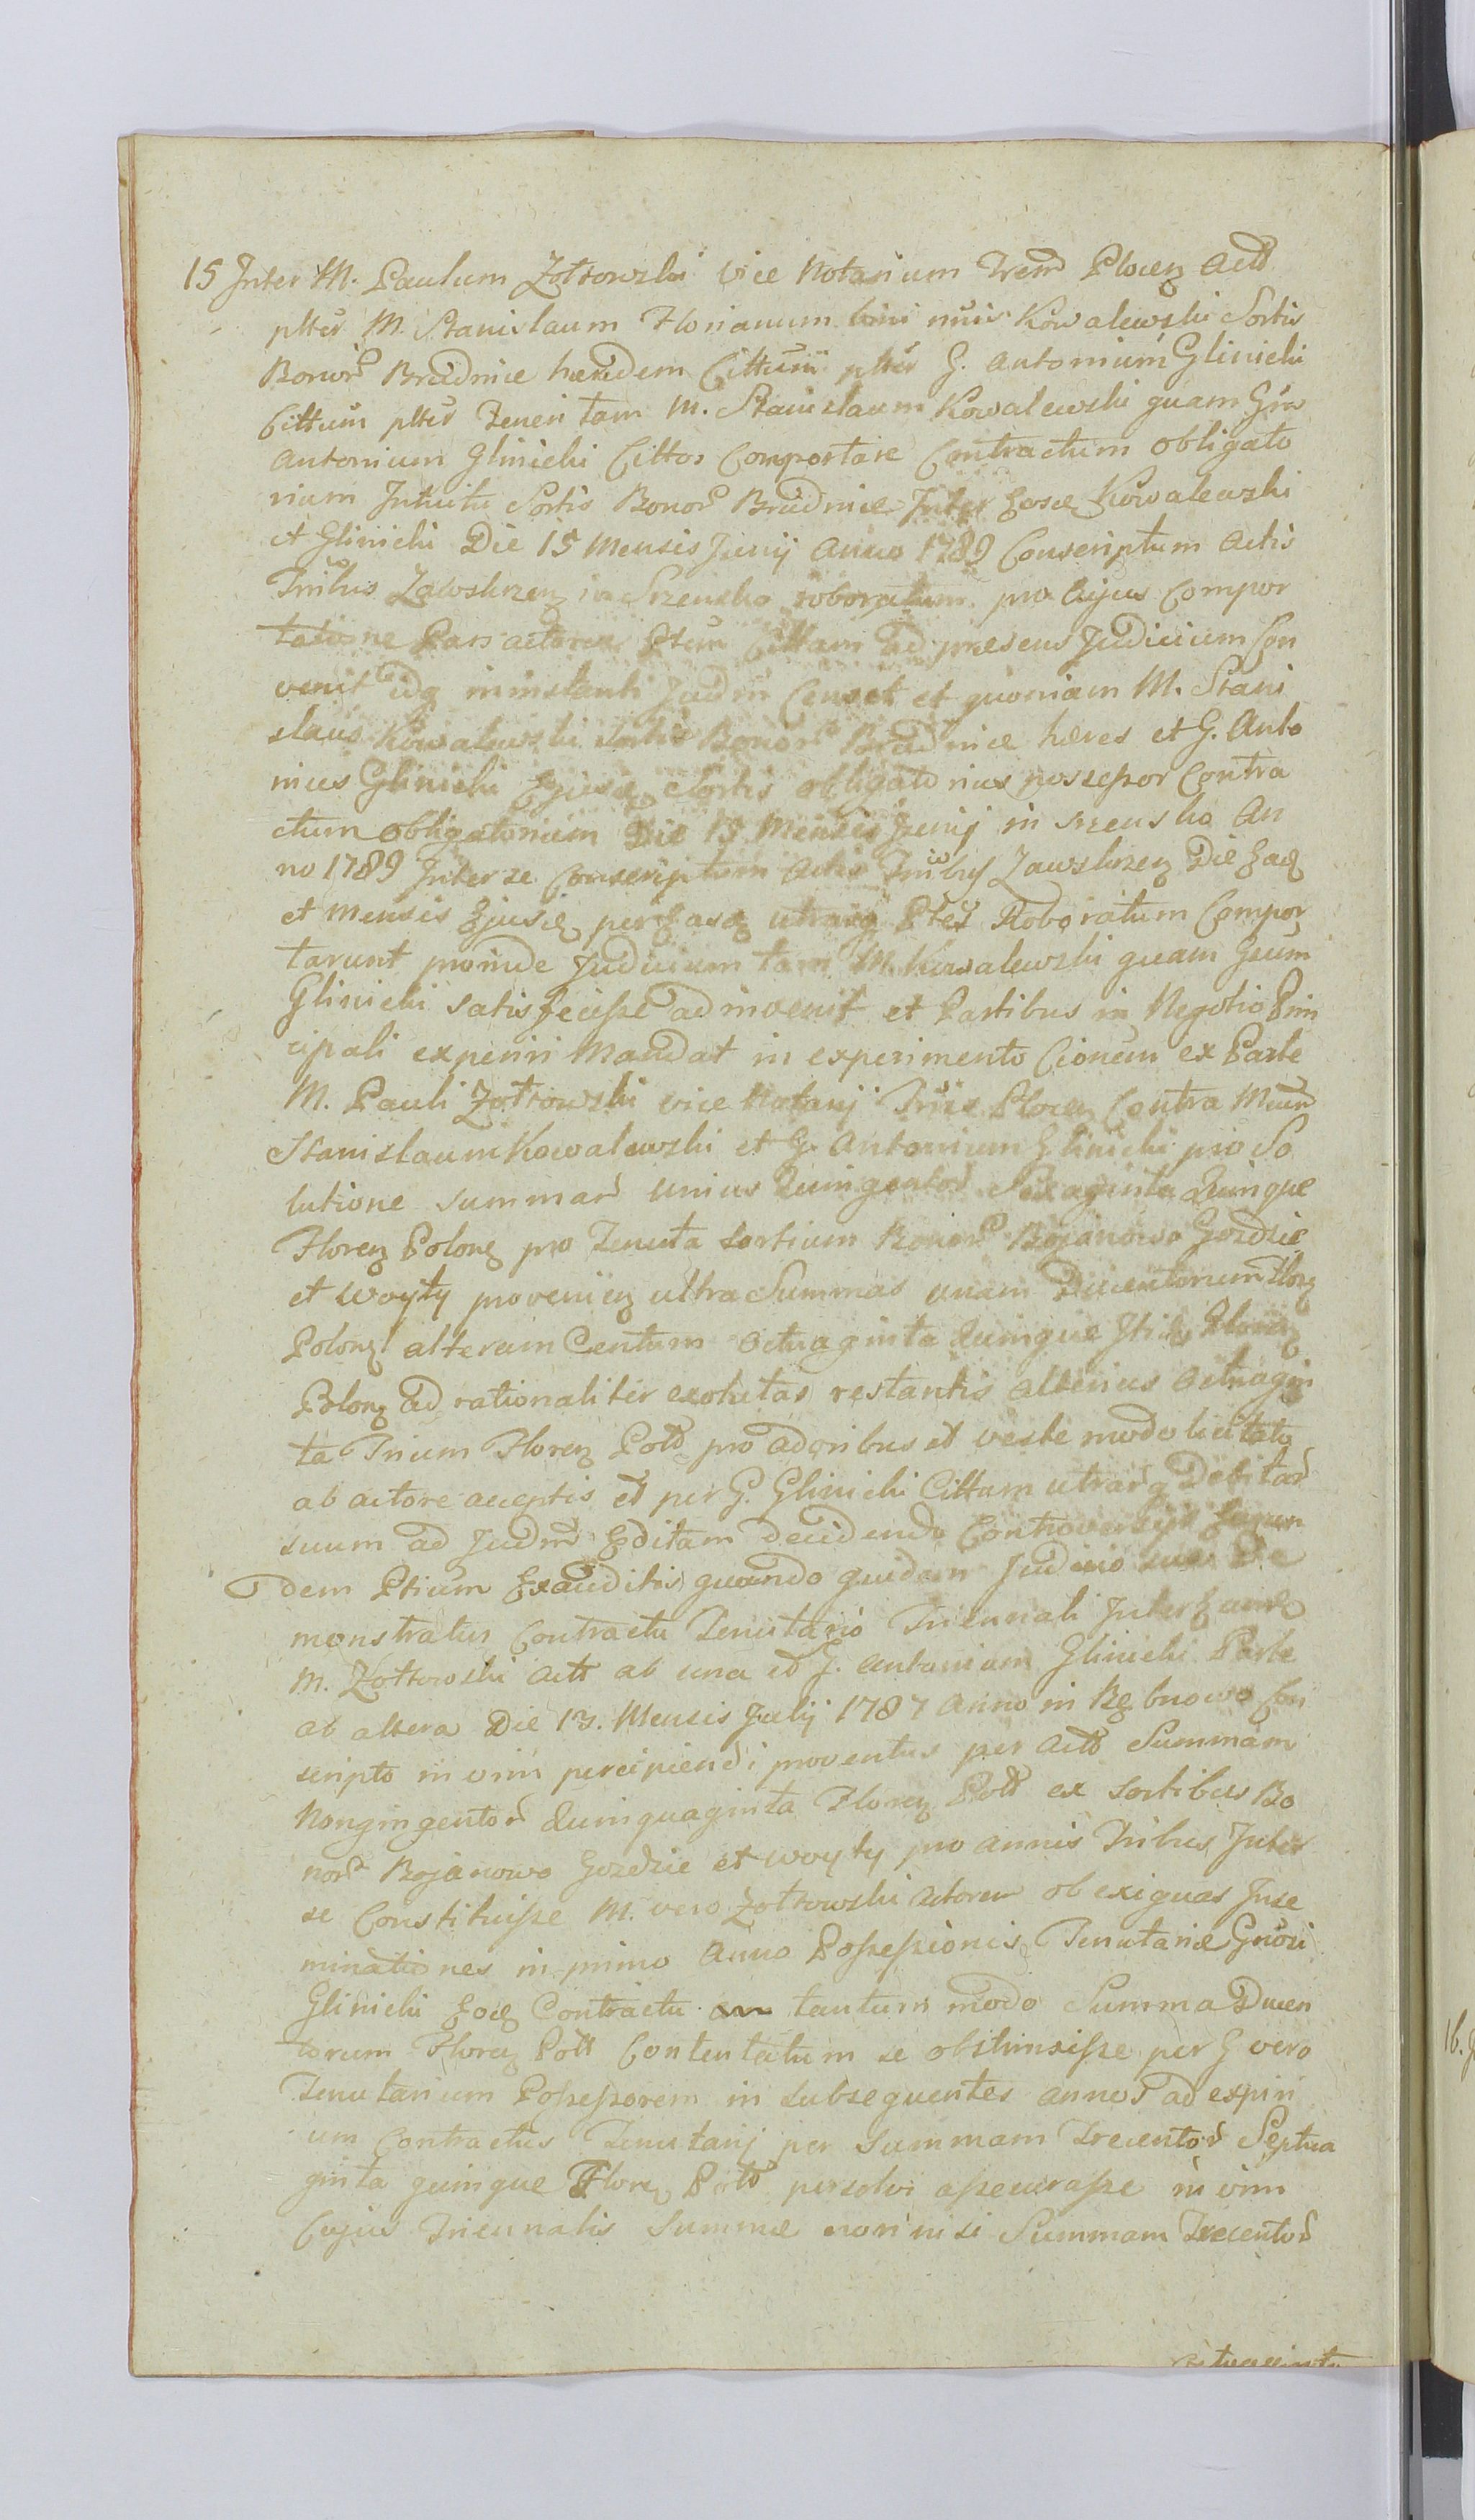 15 Inter M. Paulum Zołtowski vice Notarium Trem Plocen Actt
plter M. Stanislaum Florianum bini nnis Kowalewski Sortis
Bonor Brudnice haeredem Cittum plter G. Antonium Glinicki
Cittum plter Teneri tam M. Stanislaum Kowalewski quam Gm
Antonium Glinicki Cittos Comportare Contractum obligato
rium Intuitu Sortis Bonor Brudnice Inter Eosd Kowalewski
et Glinicki Die 15 Mensis Junij Anno 1789 Conscriptum Actis
Tribus Zawskrzen in Szrensko roboratum pro cujus Compor
tatione Pars actorea Ptem Cittam ad praesens Judicium Con
venit idq in instanti Judm Censet et quoniam M. Stani
slaus Kowalewski Sortis Bonor Brudnice haeres et G. Anto
nius Glinicki Ejusd Sortis obligatorius possessor Contra
ctum obligatorium Die 15 Mensis Junij in Srensko An
no 1789 Inter se Conscriptum Actis Tribus Zawskrzen Die Ead
et Mensis Ejusd per Easd utrasq Ptes Roboratum Compor
tarunt proinde Judicium tam M. Kowalewski quam Gum
Glinicki satis fecisse ad invenit et Partibus in Negotio Prin
cipali experiri Mandat in experimento Cionum ex Parte
M. Pauli Zołtowski vice Notarij Tris Plocen Contra Mcum
Stanislaum Kowalewski et G. Antonium Glinicki pro So
lutione summar unius Quingentor Sexaginta Quinque
Floren Polon pro Tenuta sortium Bonor Bojanowo Gozdzie
et Woyty provenien ultra Summas unam Ducentorum Flor
Polon alteram Centum Octuaginta Quinque Itid Floren
Polon ad rationaliter exolutas restantis alterius Octuagin
ta Trium Floren Poll pro adoribus et veste modo licitato
ab actore acceptis et per G. Glinicki Cittum utrarq Debitar
suum ad Judm Editam decidendo Controversijs Earun
dem Ptium Exauditis quando quidem Judicio suo De
monstratur Contractu Tenutario Triennali Inter Eand
M. Zołtowski Actt ab una et G. Antonium Glinicki Parte
ab altera Die 13. Mensis Julij 1787 Anno in Rębnowo Con
scripto in vim percipiendi proventus per Actt Summam
Nongingentor Quinquaginta Floren Poll ex sortibus Bo
nor Bojanowo Gozdzie et Woyty pro annis Tribus Inter
se Constituisse M. vero Zołtowski Actorem ob exiguas Inse
minationes in primo Anno Possessionis Tenutariae Gnosi
Glinicki Eod Contractu tantum modo Summa Ducen
torum Floren Poll Contentatum se obstrinxisse per G vero
Tenutarium Possessorem in subsequentes annos ad expiri
um Contractus Tenutarij per Summam Trecentor Septua
ginta quinque Floren Poll persolvi assecurasse in vim
Cujus Triennalis Summae non nisi Summam Trecentor